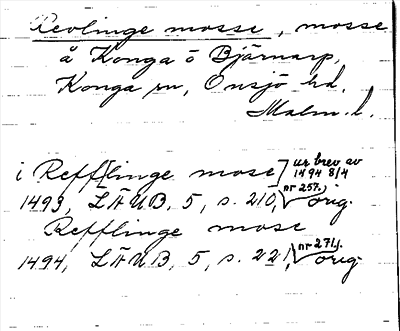 Revlinge mosse, mosse
å Konga ö Bjärnarp,
Konga sn, Onsjö hd,
Malm. l.
i Reffflinge mose] ur brev av 1494 8/4
1493, LÄUB, 5, s. 210, nr 257, orig.
Refflinge mose
1494, LÄUB, 5, s. 221, nr 271, orig.